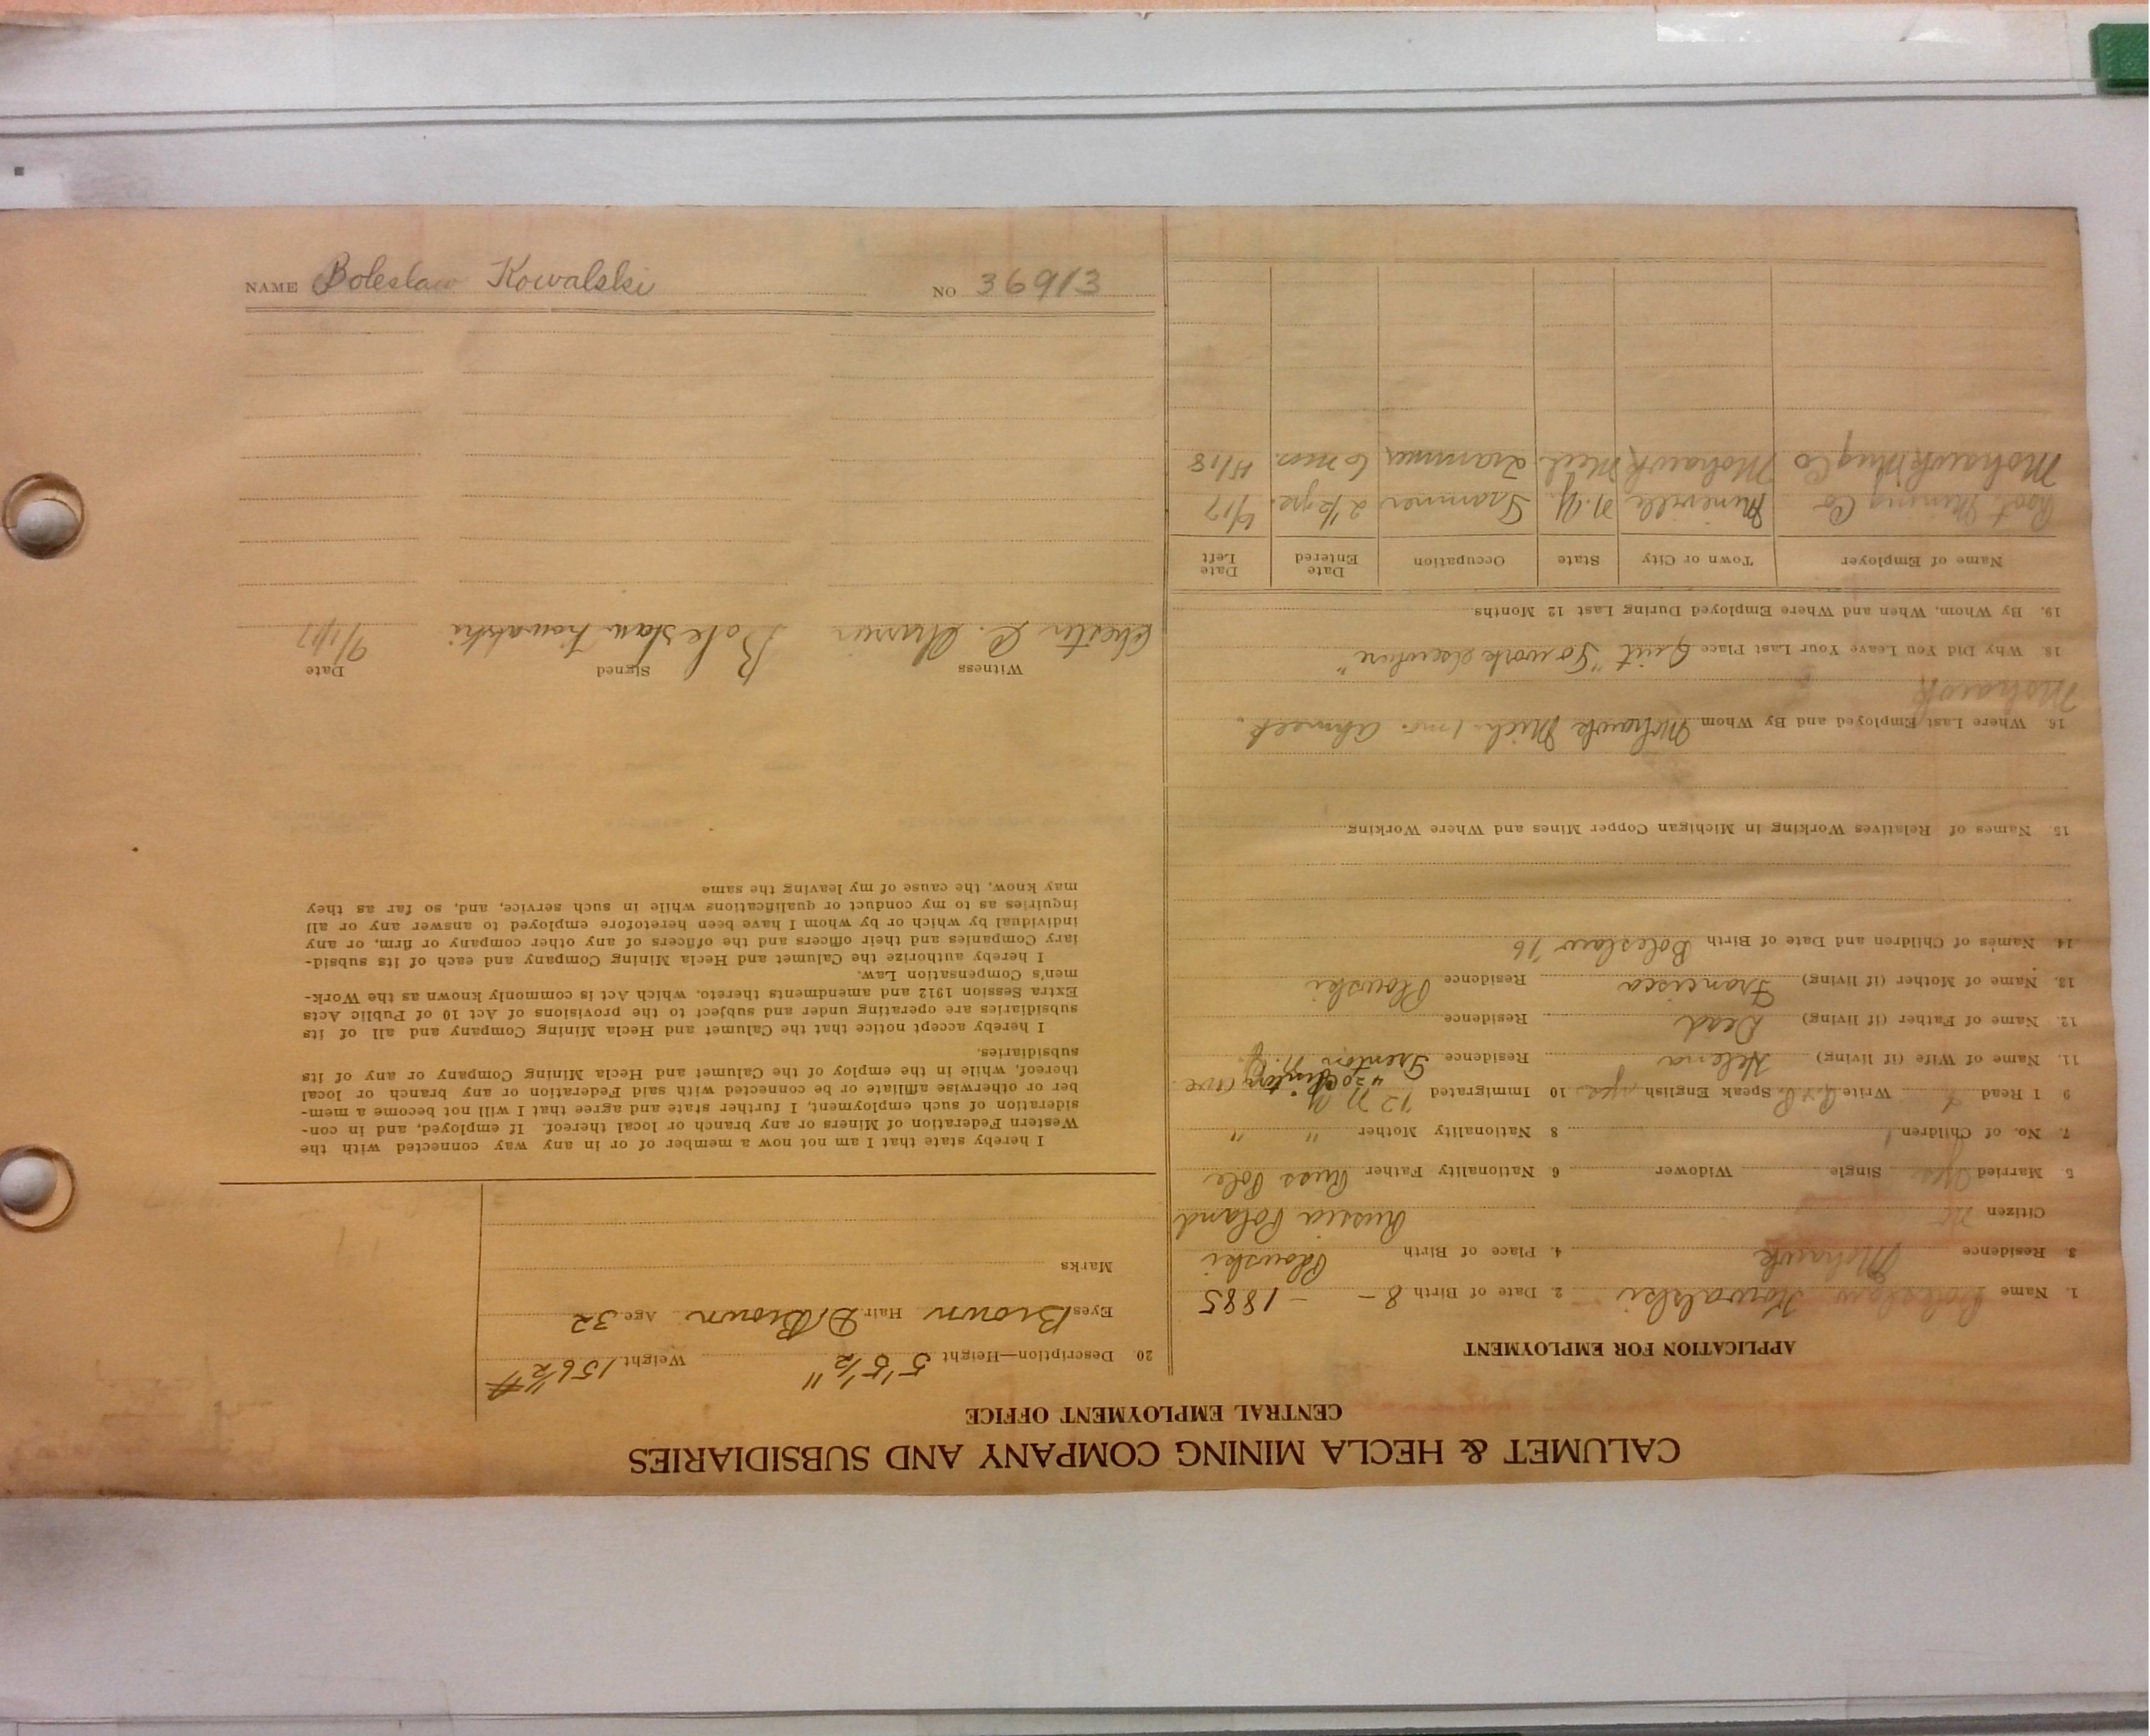 CALUMET & HECLA MINING COMPANY AND SUBSIDIARIES
CENTRAL EMPLOYMENT OFFICE
APPLICATION FOR EMPLOYMENT
1. Name Boleslaw Kowalski 2. Date of Birth 8 - - 1885
3. Residence Mohawk 4. Place of Birth Plowski
Citizen no Russia Poland
5. Married yes Single Widower 6. Nationality Father Russ Pole
7. No. of Children 1 8 Nationality Mother " "
9 I Read Write Speak English yes 10 Immigrated '12 N Y
430 Ave.
11. Name of Wife (if living) Helena Residence Trenton N.J.
12. Name of Father (if living) Dead Residence
13. Name of Mother (if living) Francisca Residence Plowski
14. Names of Children and Date of Birth Boleslaw '16
15. Names of Relatives Working in Michigan Copper Mines and Where Working
16. Where Last Employed and By Whom Mohawk Mich. 1 mo. Ahmeek.
Mohawk
18. Why Did You Leave Your Last Place Quit "To work elsewhere"
19. By Whom, When and Where Employed During Last 12 Months
Name of Employer Town or City State Occupation Date Entered Date Left
Mining Co Mineville N.Y. Trammer 2 1/2 yr. 6/17
Mohawk Mng Co Mohawk Mich Trammer 6 mos. 4/18
20 Description—Height 5' 5 1/2" Weight 156 1/2 #
Eyes Brown Hair D. Brown Age 32
Marks
I hereby state that I am not now a member of or in any way connected with the
Western Federation of Miners or any branch or local thereof. If employed, and in con-
sideration of such employment, I further state and agree that I will not become a mem-
ber or otherwise affiliate or be connected with said Federation or any branch or local
thereof, while in the employ of the Calumet and Hecla Mining Company or any of its
subsidiaries.
I hereby accept notice that the Calumet and Hecla Mining Company and all of its
subsidiaries are operating under and subject to the provisions of Act 10 of Public Acts
Extra Session 1912 and amendments thereto, which Act is commonly known as the Work-
men's Compensation Law.
I hereby authorize the Calumet and Hecla Mining Company and each of its subsid-
iary Companies and their officers and the officers of any other company or firm, or any
individual by which or by whom I have been heretofore employed to answer any or all
inquiries as to my conduct or qualifications while in such service, and, so far as they
may know, the cause of my leaving the same
Witness Signed Date
Chester C. Boleslaw Kowalski 9/1/17
NAME Boleslaw Kowalski NO 36913